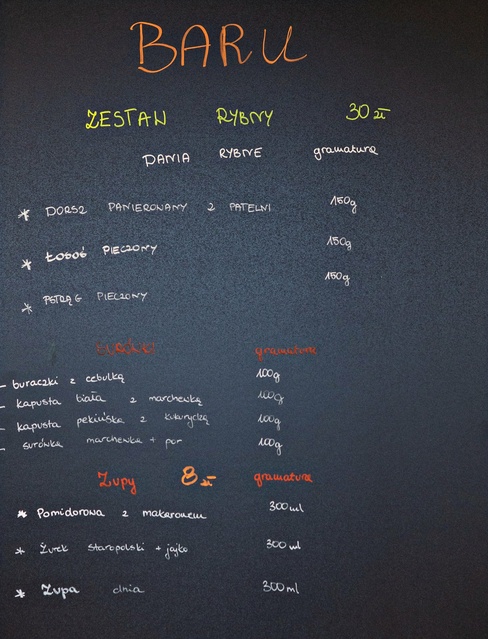 BARU
ZESTAW RYBNY 30 zł
DANIA RYBNE gramatura
* DORSZ PANIEROWANY Z PATELNI 150g
* ŁOSOŚ PIECZONY 150g
* PSTRĄG PIECZONY 150g
gramatura
- buraczki z cebulką 100g
- kapusta biała z marchewką 100g
- kapusta pekińska z kukurydzą 100g
- surówka marchewka + por 100g
Zupy 8 zł gramatura
* Pomidorowa z makaronem 300ml
* Żurek staropolski + jajko 300ml
* Zupa dnia 300ml